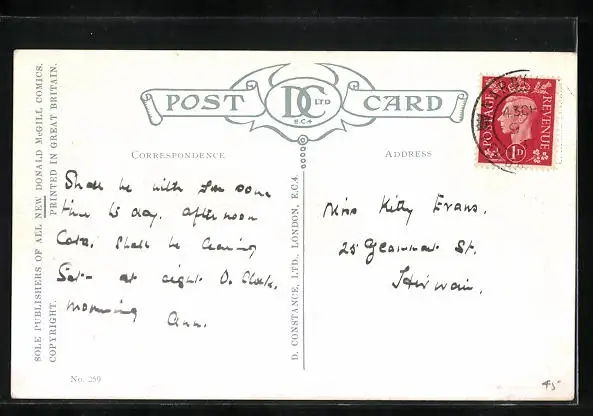 SOLE PUBLISHERS OF ALL NEW DONALD McGILL COMICS.
COPYRIGHT. PRINTED IN GREAT BRITAIN.
POST DC LTD CARD
E.C.4
CORRESPONDENCE
ADDRESS
Shall be with
time to day. afternoon
Cora. Shall be leaving
Sat- at eight O. Clock.
morning
Ann.
D. CONSTANCE, LTD., LONDON, E.C.4.
Miss Kitty Evans.
25 St.
Hirwain.
POSTAGE REVENUE
1D
No. 259
45